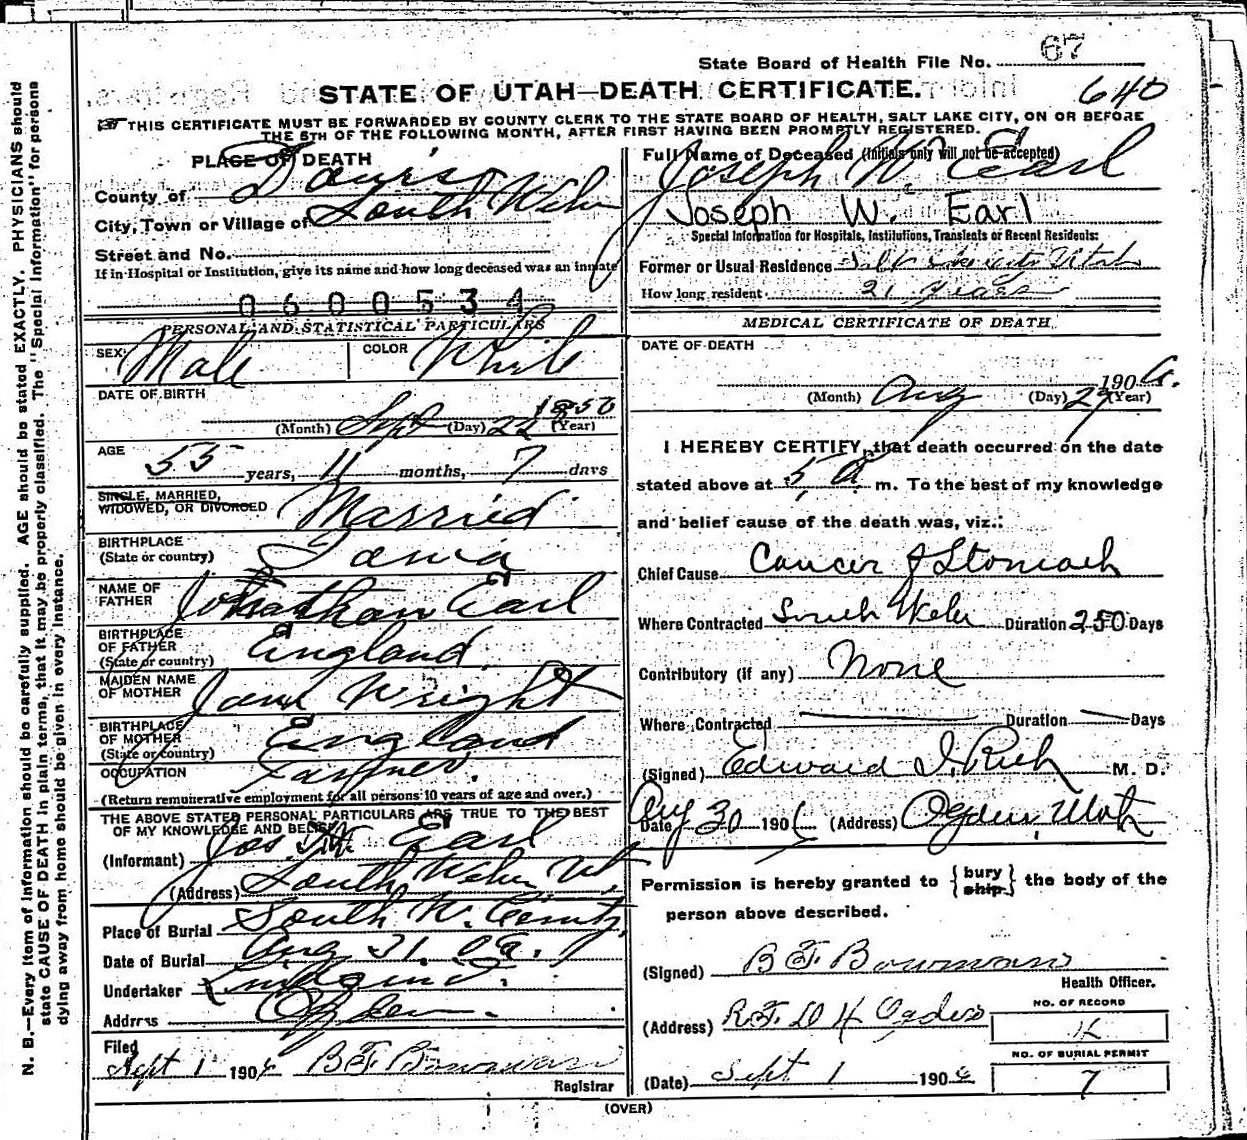 State Board of Health File No. 67
STATE OF UTAH—DEATH CERTIFICATE.
640
THIS CERTIFICATE MUST BE FORWARDED BY COUNTY CLERK TO THE STATE BOARD OF HEALTH, SALT LAKE CITY, ON OR BEFORE
THE 5TH OF THE FOLLOWING MONTH, AFTER FIRST HAVING BEEN PROMPTLY REGISTERED.
PLACE OF DEATH
County of Davis
City, Town or Village of South Weber
Street and No.
If in Hospital or Institution, give its name and how long deceased was an inmate
0600534
PERSONAL AND STATISTICAL PARTICULARS
SEX Male COLOR White
DATE OF BIRTH
(Month) Sept (Day) 22 1850 (Year)
AGE 55 years, 11 months, 7 days
SINGLE, MARRIED,
WIDOWED, OR DIVORCED Married
BIRTHPLACE
(State or country)
NAME OF
FATHER Jonathan Earl
BIRTHPLACE
OF FATHER
(State or country) England
MAIDEN NAME
OF MOTHER Jane Wright
BIRTHPLACE
OF MOTHER
(State or country) England
OCCUPATION Farmer.
(Return remunerative employment for all persons 10 years of age and over.)
THE ABOVE STATED PERSONAL PARTICULARS ARE TRUE TO THE BEST
OF MY KNOWLEDGE AND BELIEF
(Informant) Jos. W. Earl
(Address) South Weber Ut,
Place of Burial South W.
Date of Burial Aug 31. 06.
Undertaker
Address Ogden.
Filed
Sept 1 1906 B F Bowman
Registrar
Full Name of Deceased (Initials only will not be accepted)
Joseph W. Earl
Joseph W. Earl
Special Information for Hospitals, Institutions, Transients or Recent Residents:
Former or Usual Residence Salt Lake City Utah
How long resident 21 Years
MEDICAL CERTIFICATE OF DEATH
DATE OF DEATH
(Month) Aug (Day) 29 1906. (Year)
I HEREBY CERTIFY, that death occurred on the date
stated above at 5 A. m. To the best of my knowledge
and belief cause of the death was, viz.:
Chief Cause Cancer of Stomach
Where Contracted South Weber Duration 250 Days
Contributory (if any) None
Where Contracted Duration Days
(Signed) Edward I. Rich M. D.
Date Aug 30 1906 (Address) Ogden, Utah
Permission is hereby granted to {bury ship} the body of the
person above described.
(Signed) B F. Bowman
Health Officer.
(Address) R.F.D 4 Ogden
NO. OF RECORD
NO. OF BURIAL PERMIT
7
(Date) Sept 1 1906
(OVER)
N. B.—Every item of information should be carefully supplied. AGE should be stated EXACTLY. PHYSICIANS should
state CAUSE OF DEATH in plain terms, that it may be properly classified. The "Special Information" for persons
dying away from home should be given in every instance.